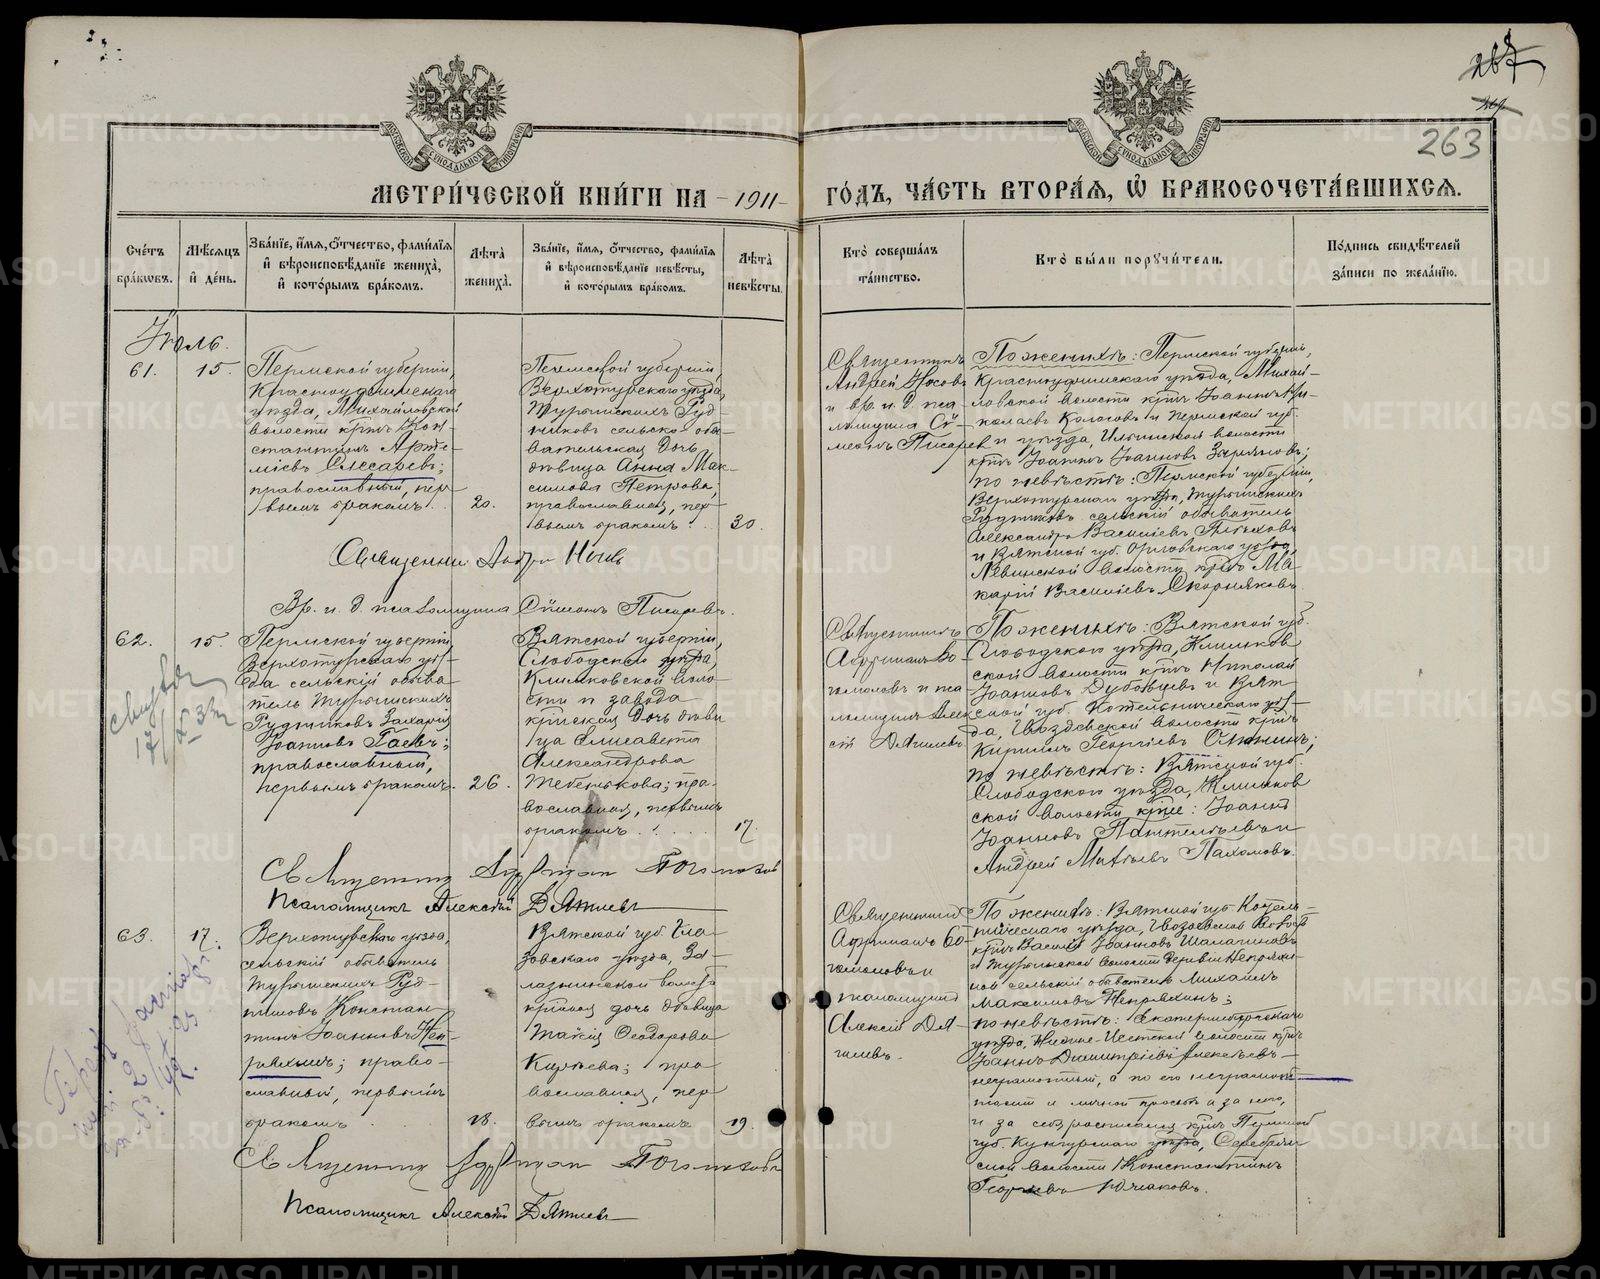 263
МОСКОВСКОЙ СѴНОДАЛЬНОЙ ТИПОГРАФІИ
МОСКОВСКОЙ СѴНОДАЛЬНОЙ ТИПОГРАФІИ
МЕТРИ́ЧЕСКОЙ КНИ́ГИ НА -1911- ГО́ДЪ, ЧА́СТЬ ВТОРА́Ѧ, Ѡ҆ БРАКОСОЧЕТА́ВШИХСѦ.
Сче́тъ бра́кѡвъ.
Мѣ́сѧцъ и҆ де́нь.
Зва́нїе, и҆́мѧ, ѻ҆́тчество, фами́лїѧ и҆ вѣроисповѣ́данїе жениха̀, и҆ кото́рымъ бра́комъ.
Лѣ̑та̀ жениха̀.
Зва́нїе, и҆́мѧ, ѻ҆́тчество, фами́лїѧ и҆ вѣроисповѣ́данїе невѣ́сты, и҆ кото́рымъ бра́комъ.
Лѣ̑та̀ невѣ́сты.
Кто̀ соверша́лъ та́инство.
Кто̀ бы́ли порꙋчи́тели.
По́дпись свидѣ́телей за́писи по жела́нїю.
Іюль.
61.
15.
Пермской губерніи,
Красноуфимскаго
уѣзда, Михайловской
волости кр-нъ Кон-
стантинъ Арте-
міевъ Слесаревъ;
православный, пер-
вымъ бракомъ.
20.
Пермской губерніи,
Верхотурскаго уѣзда,
Турьинскихъ Руд-
никовъ сельско-обы-
вательская дочь
дѣвица Анна Мак-
симова Петрова,
православная, пер-
вымъ бракомъ.
30.
Священникъ
Андрей Носовъ
и вр. и. д. пса-
ломщика Сѵ-
меонъ Писаревъ
По женихѣ: Пермской губерніи,
Красноуфимскаго уѣзда, Михай-
ловской волости кр-нъ Іоаннъ Ни-
колаевъ Колосовъ и Пермской губ.
и уѣзда, Ильинской волости
кр-нъ Іоаннъ Іоанновъ Зыряновъ;
по невѣстѣ: Пермской губерніи,
Верхотурскаго уѣзда, Турьинскихъ
Рудниковъ сельскій обыватель
Александръ Васильевъ Плѣховъ
и Вятской губ. Орловскаго уѣзда,
Левинской волости кр-нъ Ма-
карій Васильевъ Скорняковъ
Священникъ Андрей Носовъ
Вр. и. д. псаломщика Сѵмеонъ Писаревъ.
62.
15.
Пермской губерніи,
Верхотурскаго уѣз-
да сельскій обыва-
тель Турьинскихъ
Рудниковъ Захарія
Іоанновъ Гаевъ;
православный,
первымъ бракомъ.
26.
Вятской губерніи,
Слободского уѣзда,
Климковской воло-
сти и завода
кр-нская дочь дѣви-
ца Елисавета
Александрова
Тебенькова; пра-
вославная, первымъ
бракомъ.
17
Священникъ
Африканъ Бо-
гомоловъ и пса-
ломщикъ Алек-
сій Дягилевъ
По женихѣ: Вятской губ.
Слободского уѣзда, Климков-
ской волости кр-нъ Николай
Іоанновъ Дубовцевъ и Вят-
ской губ. Котельническаго уѣз-
да, Гвоздевской волости кр-нъ
Кириллъ Георгіевъ
по невѣстѣ: Вятской губ.
Слободского уѣзда, Климков-
ской волости кр-не: Іоаннъ
Іоанновъ Пантелѣевъ и
Андрей Матѳіевъ Пахомовъ.
Священникъ Африканъ Богомоловъ
Псаломщикъ Алексій Дягилевъ
63.
17.
Верхотурскаго уѣзда,
сельскій обыватель
Турьинскихъ Руд-
никовъ Констан-
тинъ Іоанновъ Неп-
ряхинъ; право-
славный, первымъ
бракомъ
18.
Вятской губ. Гла-
зовскаго уѣзда,
волости
кр-нская дочь дѣвица
Таисія Ѳеодорова
Киряева; пра-
вославная, пер-
вымъ бракомъ
19.
Священникъ
Африканъ Бо-
гомоловъ и
псаломщикъ
Алексій Дя-
гилевъ.
По женихѣ: Вятской губ. Котель-
ническаго уѣзда, Гвоздевской волости
кр-нъ Василій Іоанновъ Шалагиновъ
и Турьинской волости деревни Непряхи-
ной сельскій обыватель Михаилъ
Максимовъ Непряхинъ;
по невѣстѣ: Екатеринбургскаго
уѣзда, Нижне-Исетской волости кр-нъ
Іоаннъ Димитріевъ Алексѣевъ-
неграмотный, а по его неграмот-
ности и личной просьбѣ и за него,
и за себя росписался кр-нъ Пермской
губ. Кунгурскаго уѣзда, Серебрян-
ской волости Константинъ
Георгіевъ Южаковъ.
Священникъ Африканъ Богомоловъ
Псаломщикъ Алексій Дягилевъ
METRIKI.GASO-URAL.RU